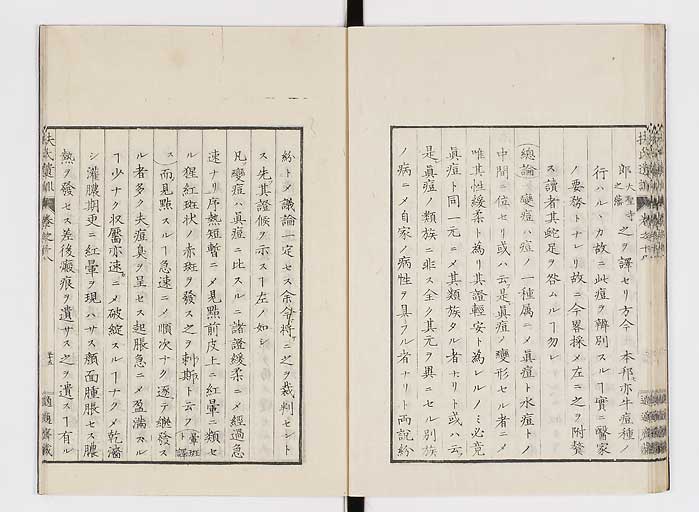 郎大聖寺之藩之ヲ譯セリ方今 本邦亦牛痘種ノ
行ハルヽカ故ニ此痘ヲ辨別スルヿ實ニ醫家
ノ要務トナレリ故ニ今畧採メ左ニ之ヲ附贅
ス讀者其蛇足ヲ咎ムルヿ勿レ
總論 變痘ハ痘ノ一種属ニメ眞痘ト水痘トノ
中間ニ位セリ或ハ云是眞痘ノ變形セル者ニメ
唯其性緩柔ト為リ其證輕安ト為レルノミ必竟
眞痘ト同一元ニメ其類族タル者ナリト或ハ云
是眞痘ノ類族ニ非ス全ク其元ヲ異ニセル別族
ノ病ニメ自家ノ病性ヲ具フル者ナリト両説紛
紛トメ議論一定セス余今將ニ之ヲ裁判セント
ス先其證候ヲ示スヿ左ノ如シ
凡變痘ハ眞痘ニ比スルニ諸證緩柔ニメ經過急
速ナリ序熱短暫ニメ見點前皮上ニ紅暈ニ類セ
ル猩紅斑状ノ赤斑ヲ發ス之ヲ刺斯ト云フ暈斑ト譯
ス而見點スルヿ急速ニメ順次ナク逐テ簇發ス
ル者多ク夫痘臭ヲ呈セス起脹急ニメ盈満スル
ヿ少ナク収靨亦速ニメ破綻スルヿナクメ乾瀋
シ灌膿期更ニ紅暈ヲ現ハサス顔面腫脹セス膿
熱ヲ發セス差後瘢痕ヲ遺サス之ヲ遺スヿ有ル
扶氏遺訓